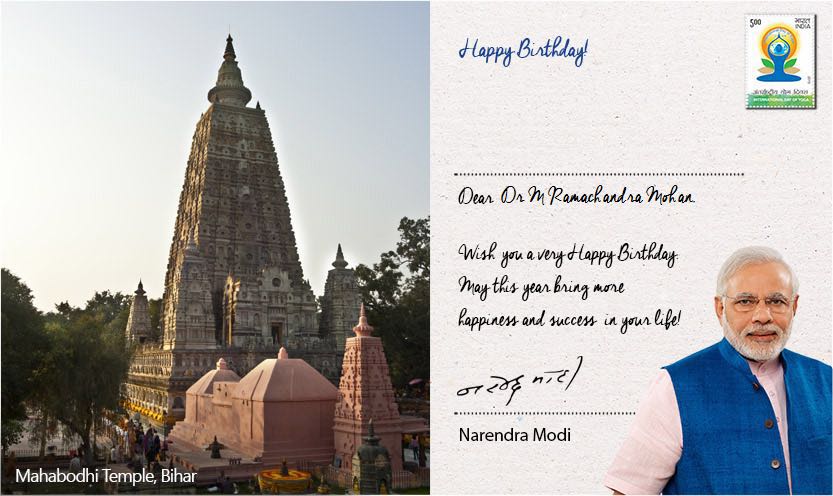 Happy Birthday!
5.00
भारत
INDIA
अंतर्राष्ट्रीय योग दिवस
INTERNATIONAL DAY OF YOGA
Dear Dr M Ramachandra Mohan.
Wish you a very Happy Birthday.
May this year bring more
happiness and success in your life!
नरेन्द्र मोदी
Narendra Modi
Mahabodhi Temple, Bihar